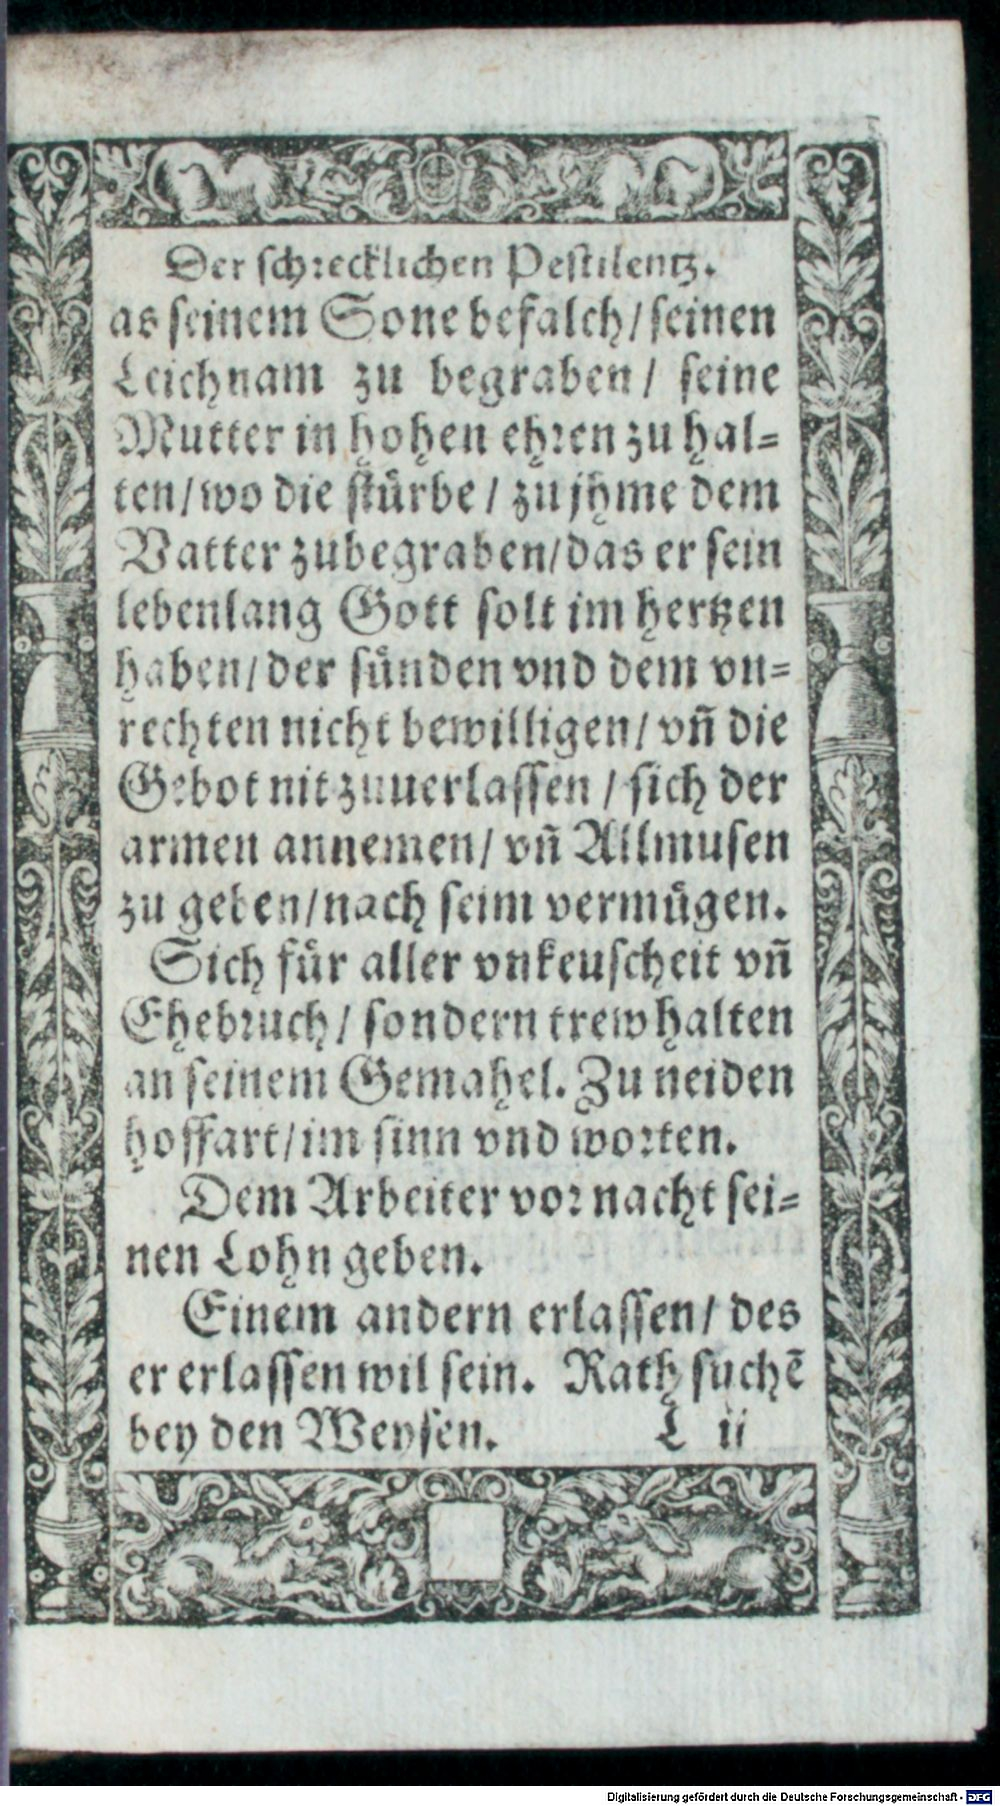 Der schrecklichen Pestilentz.
as seinem Sone befalch / seinen
Leichnam zu begraben / seine
Mutter in hohen ehren zu hal=
ten / wo die stürbe / zu jhme dem
Vatter zubegraben / das er sein
lebenlang Gott solt im hertzen
haben / der sünden vnd dem vn=
rechten nicht bewilligen / vñ die
Gebot nit zuuerlassen / sich der
armen annemen / vñ Allmusen
zu geben / nach seim vermügen.
Sich für aller vnkeuscheit vñ
Ehebruch / sondern trew halten
an seinem Gemahel. Zu neiden
hoffart / im sinn vnd worten.
Dem Arbeiter vor nacht sei=
nen Lohn geben.
Einem andern erlassen / des
er erlassen wil sein. Rath suchẽ
bey den Weysen. L ii
Digitalisierung gefördert durch die Deutsche Forschungsgemeinschaft - DFG